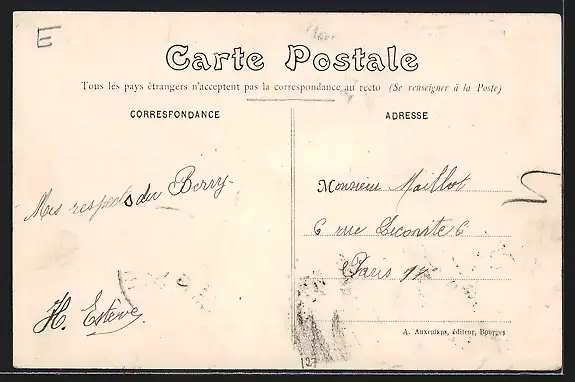 E
Carte Postale
Tous les pays étrangers n'acceptent pas la correspondance au recto (Se renseigner à la Poste)
CORRESPONDANCE
ADRESSE
Mes respects du Berry
H. Estève
Monsieur Maillot
6 rue Lecomte 6
Paris 17e
A. Auxenfans, éditeur, Bourges
127